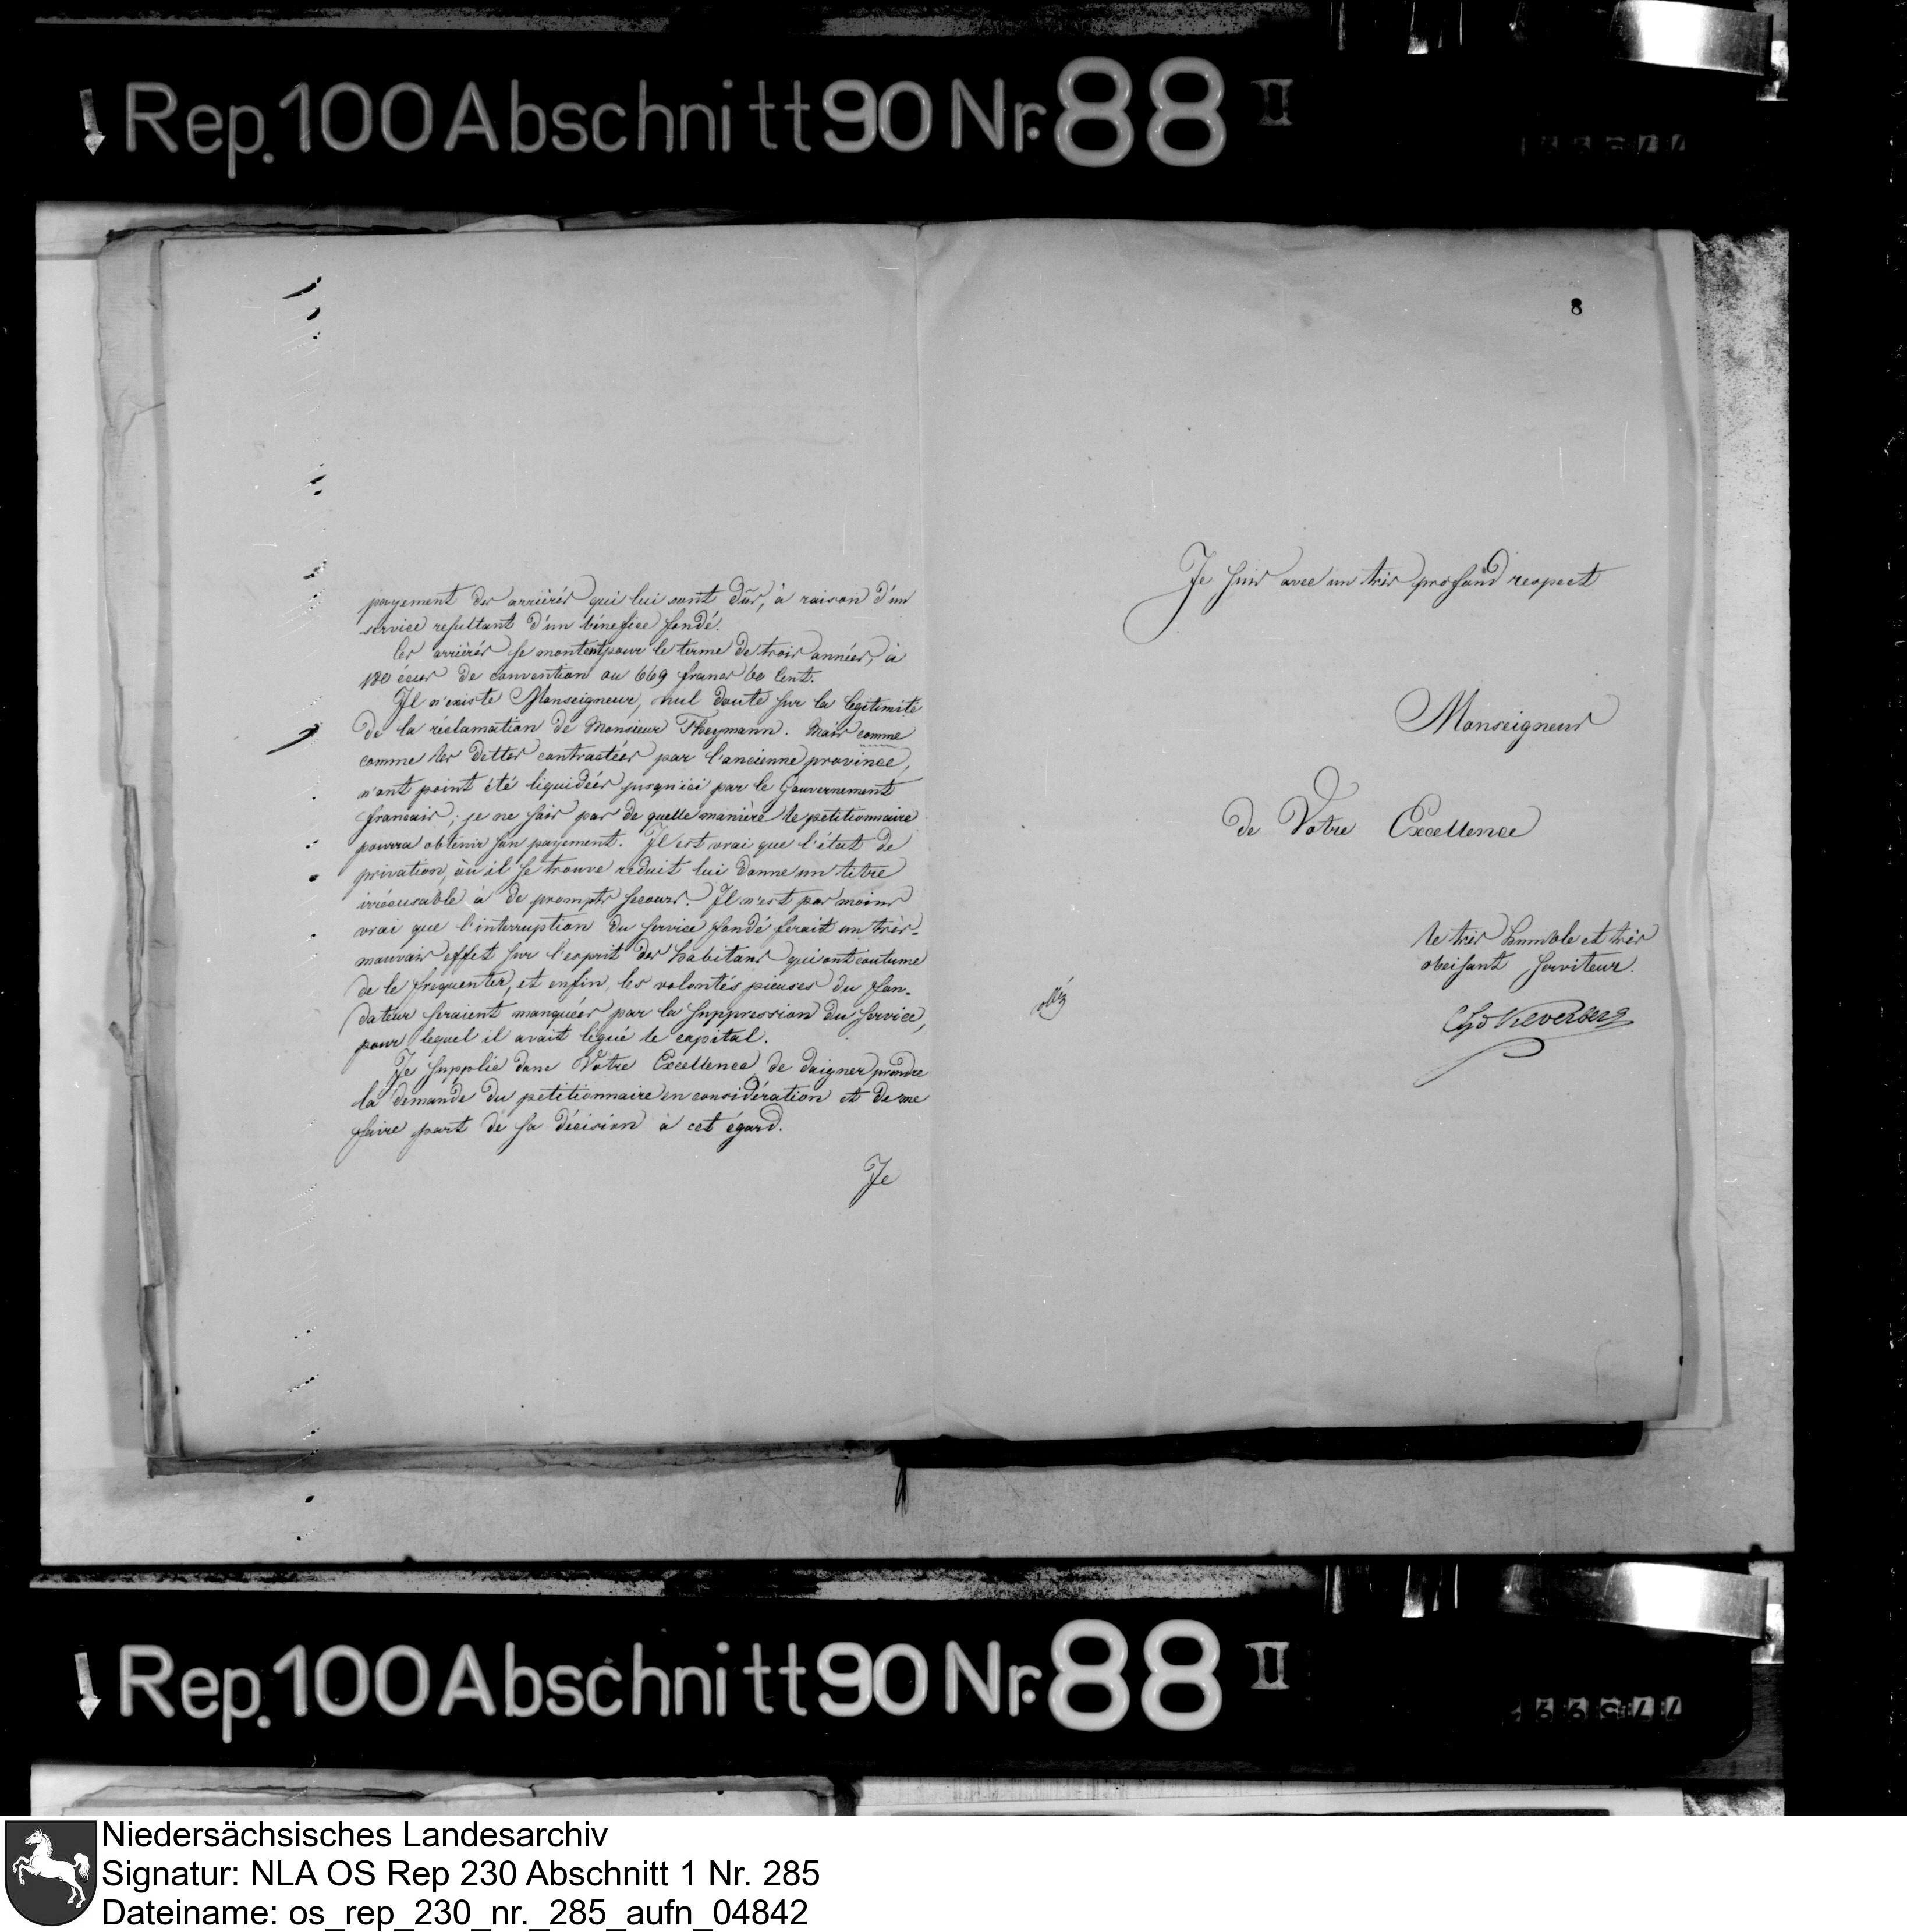 Rep. 100 Abschnitt 90 Nr. 88 II
payement des arriérés qui lui sont dûs, à raison d'un
service resultant d'un bénefice fondé.
Ces arriérés se montent pour le terme de trois années, à
180 écus de convention ou 669 francs 60 Cent.
Il n'existe Monseigneur, nul doute sur la legitimité
de la réclamation de Monsieur Theymann. Mais comme
comme les dettes contractées par l'ancienne province,
n'ont point été liquidées jusqu'ici par le Gouvernement
francais; je ne sais pas de quelle manière le petitionnaire
pourra obtenir son payement. Il est vrai que l'état de
privation, où il se trouve reduit lui donne un titre
irrécusable à de prompts secours. Il n'est pas moins
vrai que l'interruption du service fondé ferait un très-
mauvais effet sur l'esprit des habitans qui ont coutume
de le frequenter, et enfin, les volontés pieuses du fon-
dateur seraient manquées par la suppression du service,
pour lequel il avait légué le capital.
Je supplie donc Votre Excellence de daigner prendre
la demande du petitionnaire en considération et de me
faire part de sa décision à cet égard.
Je
8
Je suis avec un très profond respect
Monseigneur
de Votre Excellence
le très humble et très
obeisant serviteur.
Keverberg
Rep. 100 Abschnitt 90 Nr. 88 II
Niedersächsisches Landesarchiv
Signatur: NLA OS Rep 230 Abschnitt 1 Nr. 285
Dateiname: os_rep_230_nr._285_aufn_04842